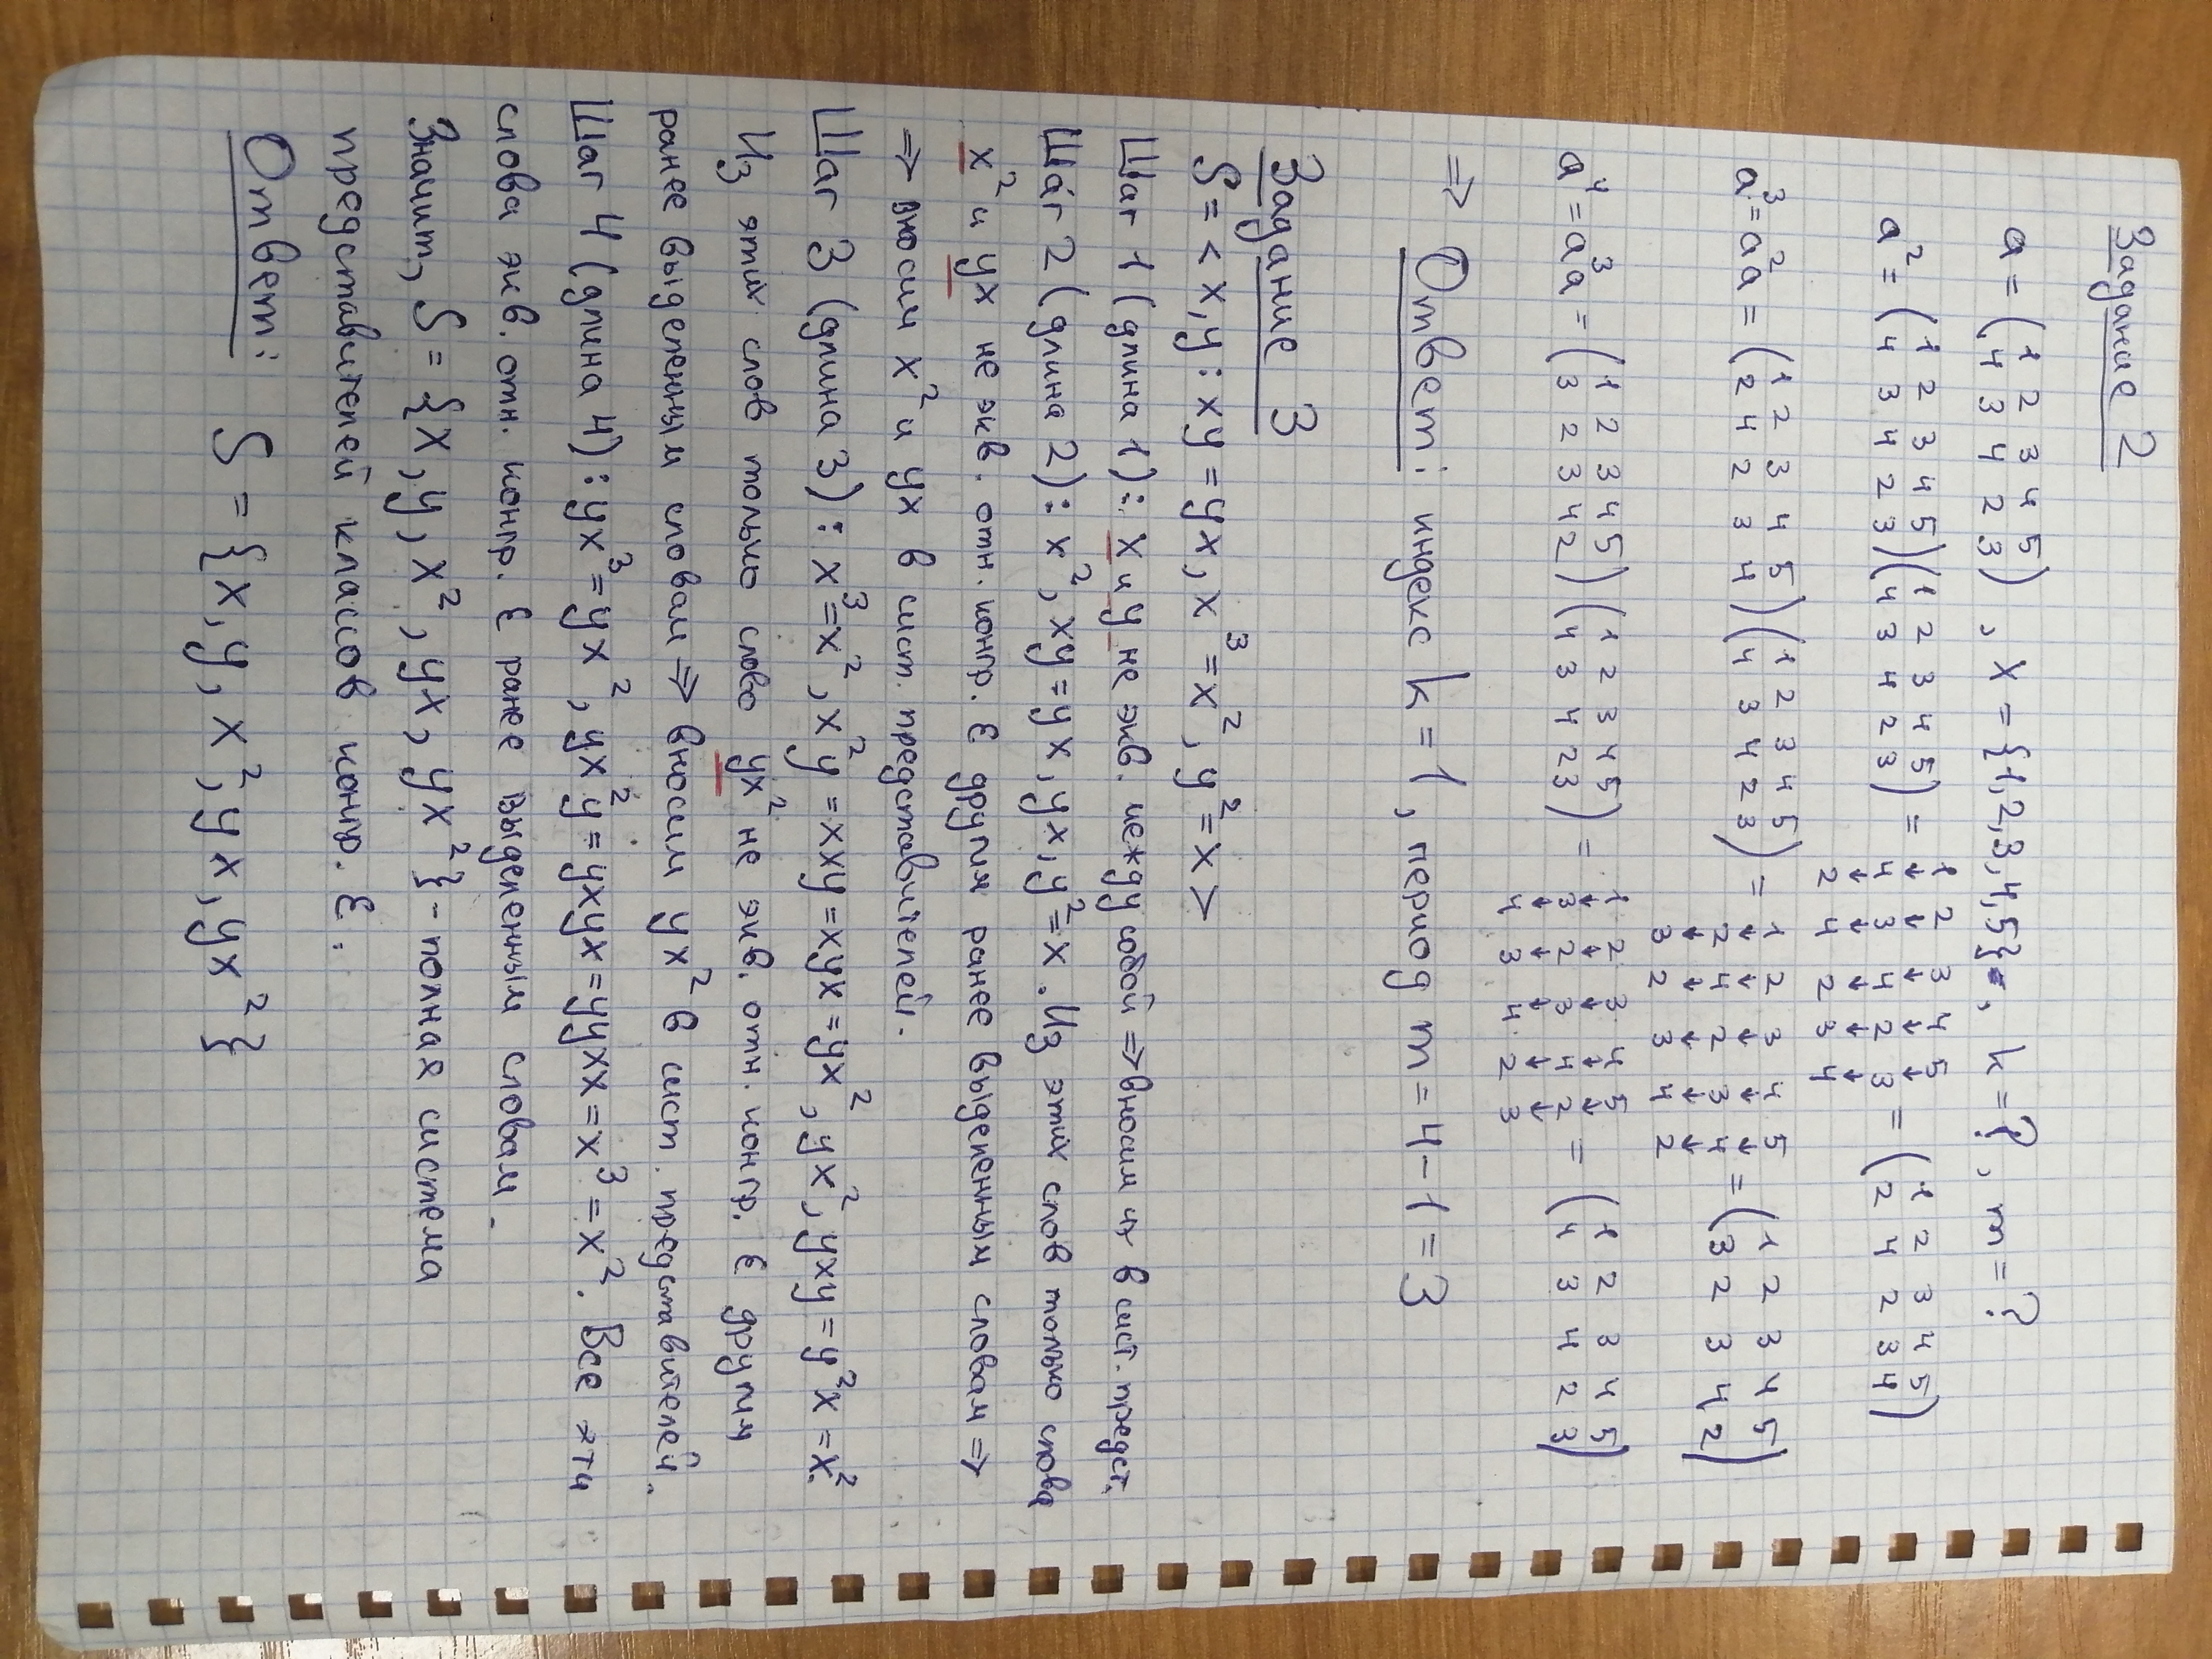 Задание 2
a = (1 2 3 4 5 / 4 3 4 2 3), X = {1,2,3,4,5}, k = ?, m = ?
a² = (1 2 3 4 5 / 4 3 4 2 3)(1 2 3 4 5 / 4 3 4 2 3) = 1 2 3 4 5 ↓ ↓ ↓ ↓ ↓ 4 3 4 2 3 ↓ ↓ ↓ ↓ ↓ 2 4 2 3 4 = (1 2 3 4 5 / 2 4 2 3 4)
a³ = a²a = (1 2 3 4 5 / 2 4 2 3 4)(1 2 3 4 5 / 4 3 4 2 3) = 1 2 3 4 5 ↓ ↓ ↓ ↓ ↓ 2 4 2 3 4 ↓ ↓ ↓ ↓ ↓ 3 2 3 4 2 = (1 2 3 4 5 / 3 2 3 4 2)
a⁴ = a³a = (1 2 3 4 5 / 3 2 3 4 2)(1 2 3 4 5 / 4 3 4 2 3) = 1 2 3 4 5 ↓ ↓ ↓ ↓ ↓ 3 2 3 4 2 ↓ ↓ ↓ ↓ ↓ 4 3 4 2 3 = (1 2 3 4 5 / 4 3 4 2 3)
⇒ Ответ: индекс k = 1, период m = 4 - 1 = 3
Задание 3
S = < x, y : xy = yx, x³ = x², y² = x >
Шаг 1 (длина 1): x и y не экв. между собой ⇒ вносим их в сист. предст.
Шаг 2 (длина 2): x², xy = yx, yx, y² = x. Из этих слов только слова
x² и yx не экв. отн. конгр. ε другим ранее выделенным словам ⇒
⇒ вносим x² и yx в сист. представителей.
Шаг 3 (длина 3): x³ = x², x²y = xxy = xyx = yx², yx², yxy = y²x = x².
Из этих слов только слово yx² не экв. отн. конгр. ε другим
ранее выделенным словам ⇒ вносим yx² в сист. представителей.
Шаг 4 (длина 4): yx³ = yx², yx²y = yxyx = yyxx = x³ = x². Все эти
слова экв. отн. конгр. ε ранее выделенным словам.
Значит, S = {x, y, x², yx, yx²} - полная система
представителей классов конгр. ε.
Ответ: S = {x, y, x², yx, yx²}